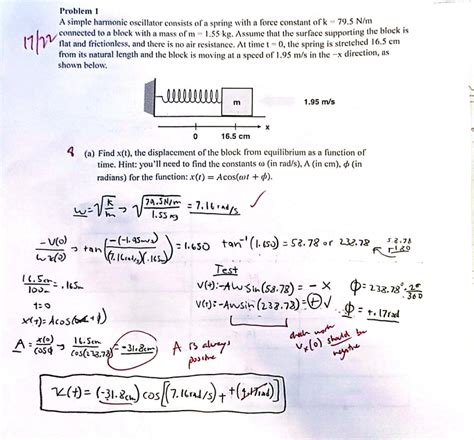 Problem 1
A simple harmonic oscillator consists of a spring with a force constant of k = 79.5 N/m
17/22 connected to a block with a mass of m = 1.55 kg. Assume that the surface supporting the block is
flat and frictionless, and there is no air resistance. At time t = 0, the spring is stretched 16.5 cm
from its natural length and the block is moving at a speed of 1.95 m/s in the −x direction, as
shown below.
m
1.95 m/s
x
0 16.5 cm
8 (a) Find x(t), the displacement of the block from equilibrium as a function of
time. Hint: you'll need to find the constants ω (in rad/s), A (in cm), ϕ (in
radians) for the function: x(t) = Acos(ωt + ϕ).
ω = √k/m → √79.5N/m / 1.55 kg = 7.16 rad/s ✓
-V(0) / ω x(0) → tan (-(-1.95m/s) / (7.16rad/s)(.165m)) = 1.650 tan⁻¹ (1.650) = 58.78 or 238.78 58.78 +180
16.5cm / 100m = .165m
Test
V(t) = -Aω sin(58.78) = - X
ϕ = 238.78° · 2π / 360
t=0
V(t) = -Aω sin(238.78) = + ✓
ϕ = 4.17rad
x(t) = A cos(ωt + ϕ)
A = x(0) / cosϕ → 16.5cm / cos(238.78) = -31.8cm
A is always
positive
check work
Vx(0) should be
negative
x(t) = (-31.8cm) cos[(7.16rad/s)t + (4.17rad)]